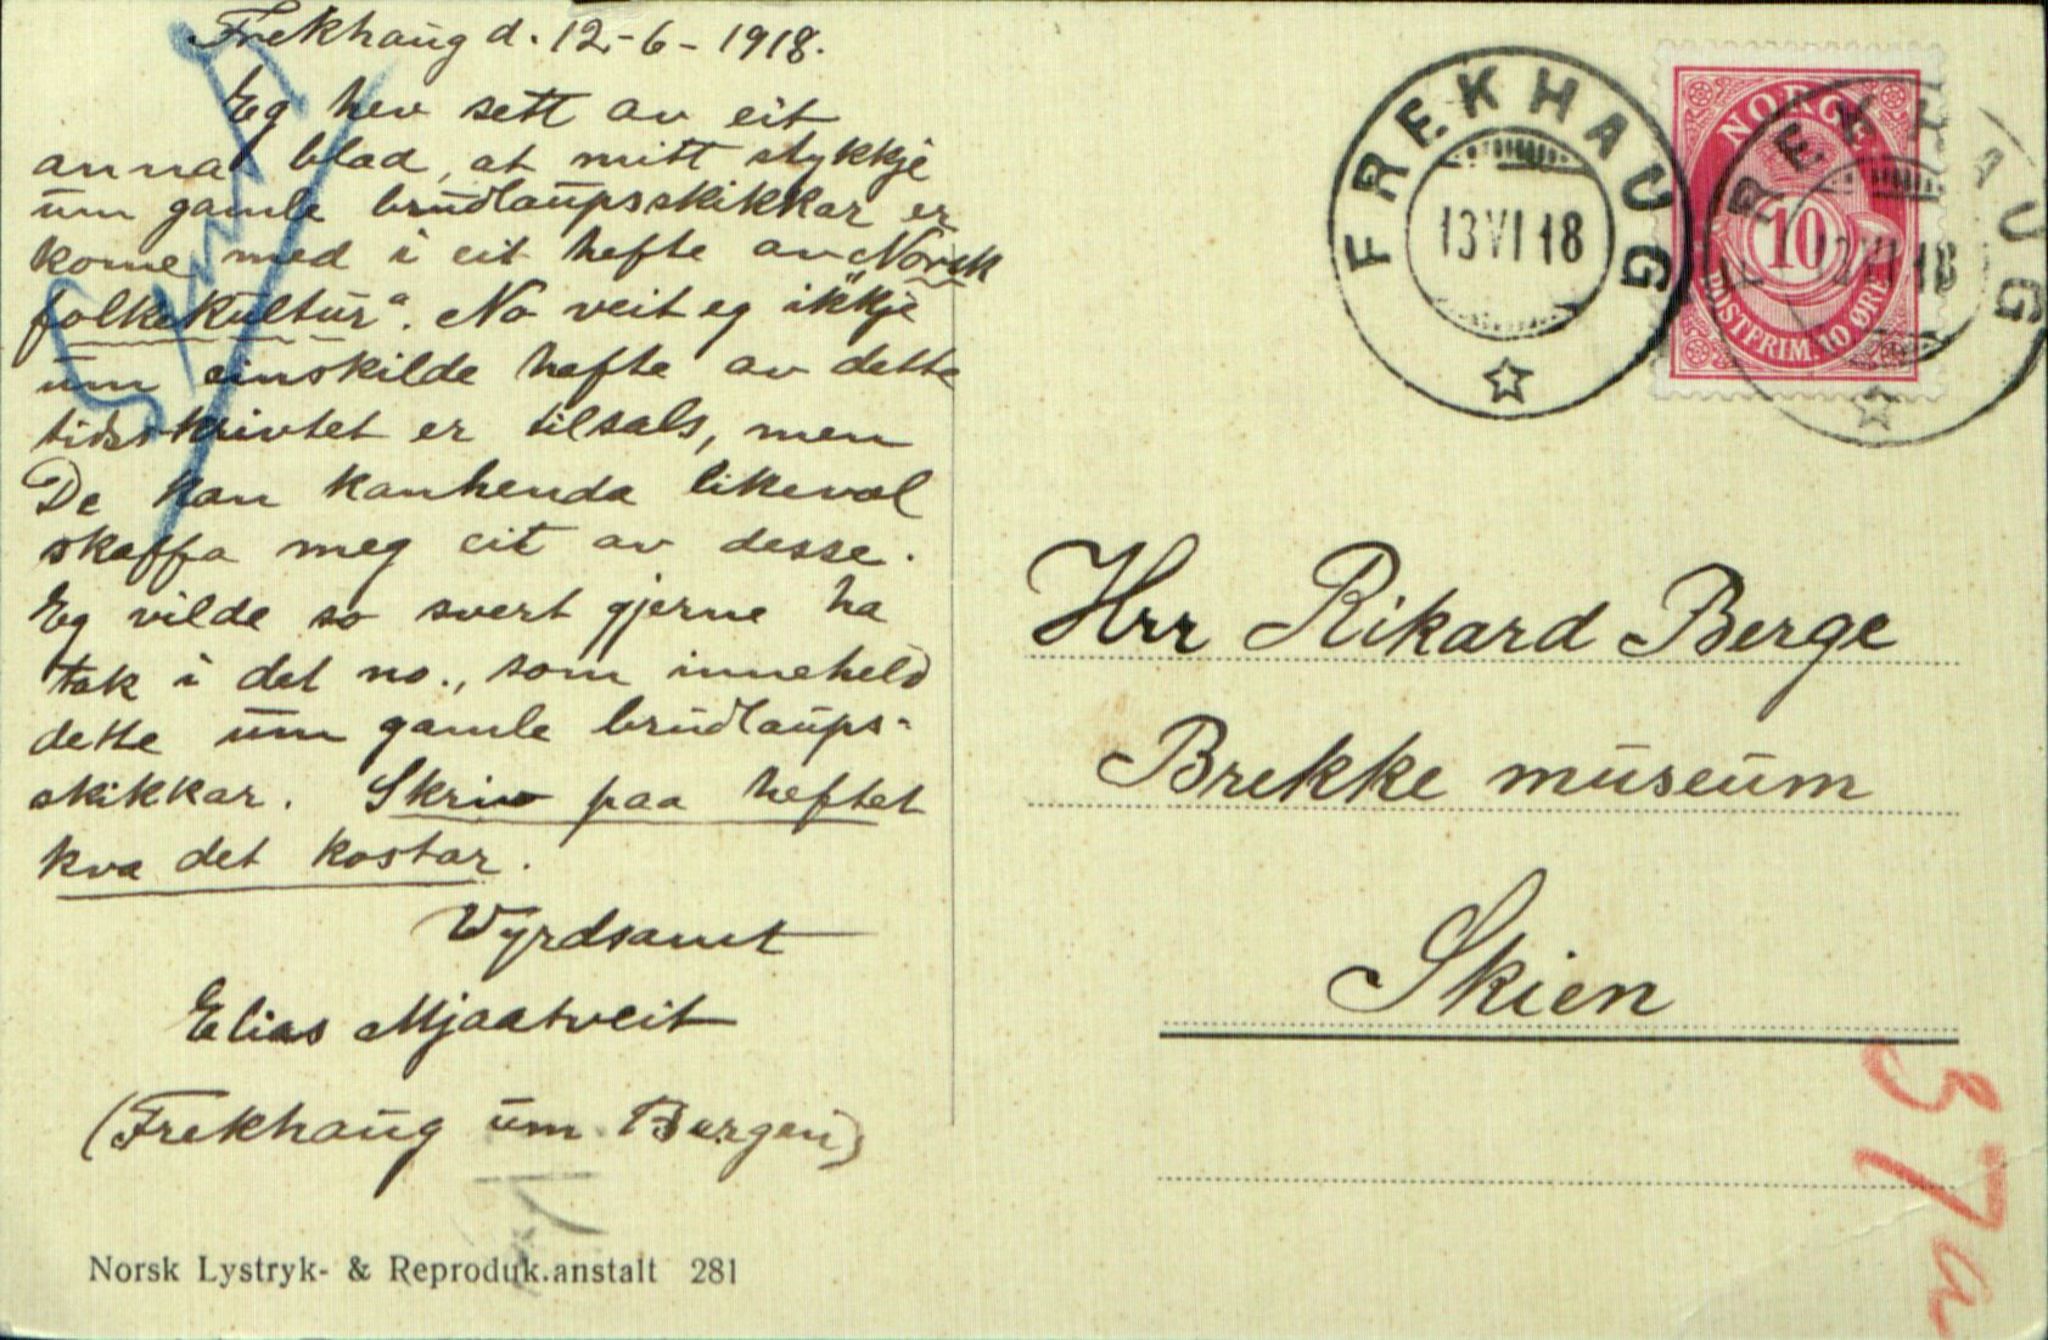 Frekhaug d. 12-6-1918.
Eg hev sett av eit
anna blad, at mitt stykkje
um gamle brudlaupsskikkar er
kome med i eit hefte av „Norsk
folkekultur“. No veit eg ikkje
um einskilde hefte av dette
tidsskrivtet er tilsals, men
De kan kanhenda likevel
skaffa meg eit av desse.
Eg vilde so svert gjerne ha
tak i det no., som inneheld
dette um gamle brudlaups-
skikkar. Skriv paa heftet
kva det kostar.
Vyrdsamt
Elias Mjaatveit
(Frekhaug um Bergen)
Norsk Lystryk- & Reproduk.anstalt 281
FREKHAUG
13 VI 18
NORGE
10
POSTFRIM. 10 ØRE
FREKHAUG
VI 18
Hrr Rikard Berge
Brekke museum
Skien
37a